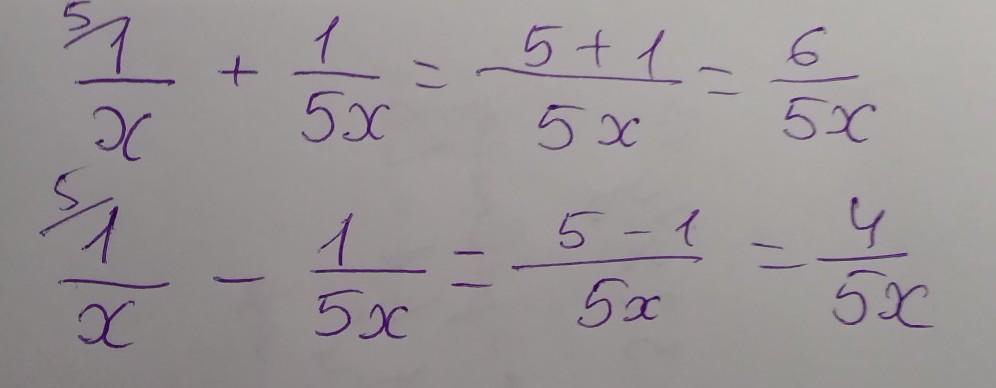 5/ 1/x + 1/5x = 5 + 1/5x = 6/5x
5/ 1/x - 1/5x = 5 - 1/5x = 4/5x